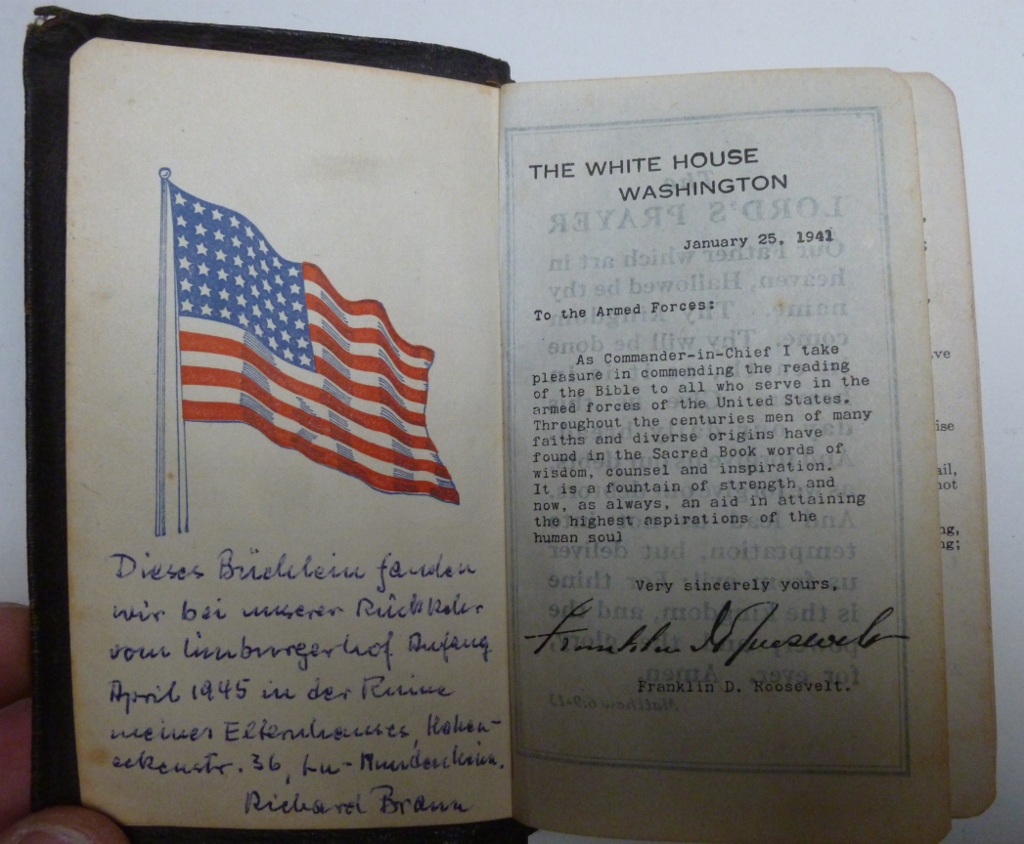 Dieses Büchlein fanden
wir bei unserer Rückkehr
vom Limburgerhof Anfang
April 1945 in der Ruine
meines Elternhauses, Hohen-
eckenstr. 36, Lu-Mundenheim.
Richard Braun
THE WHITE HOUSE
WASHINGTON
January 25, 1941
To the Armed Forces:
As Commander-in-Chief I take
pleasure in commending the reading
of the Bible to all who serve in the
armed forces of the United States.
Throughout the centuries men of many
faiths and diverse origins have
found in the Sacred Book words of
wisdom, counsel and inspiration.
It is a fountain of strength and
now, as always, an aid in attaining
the highest aspirations of the
human soul
Very sincerely yours,
Franklin D Roosevelt
Franklin D. Roosevelt.